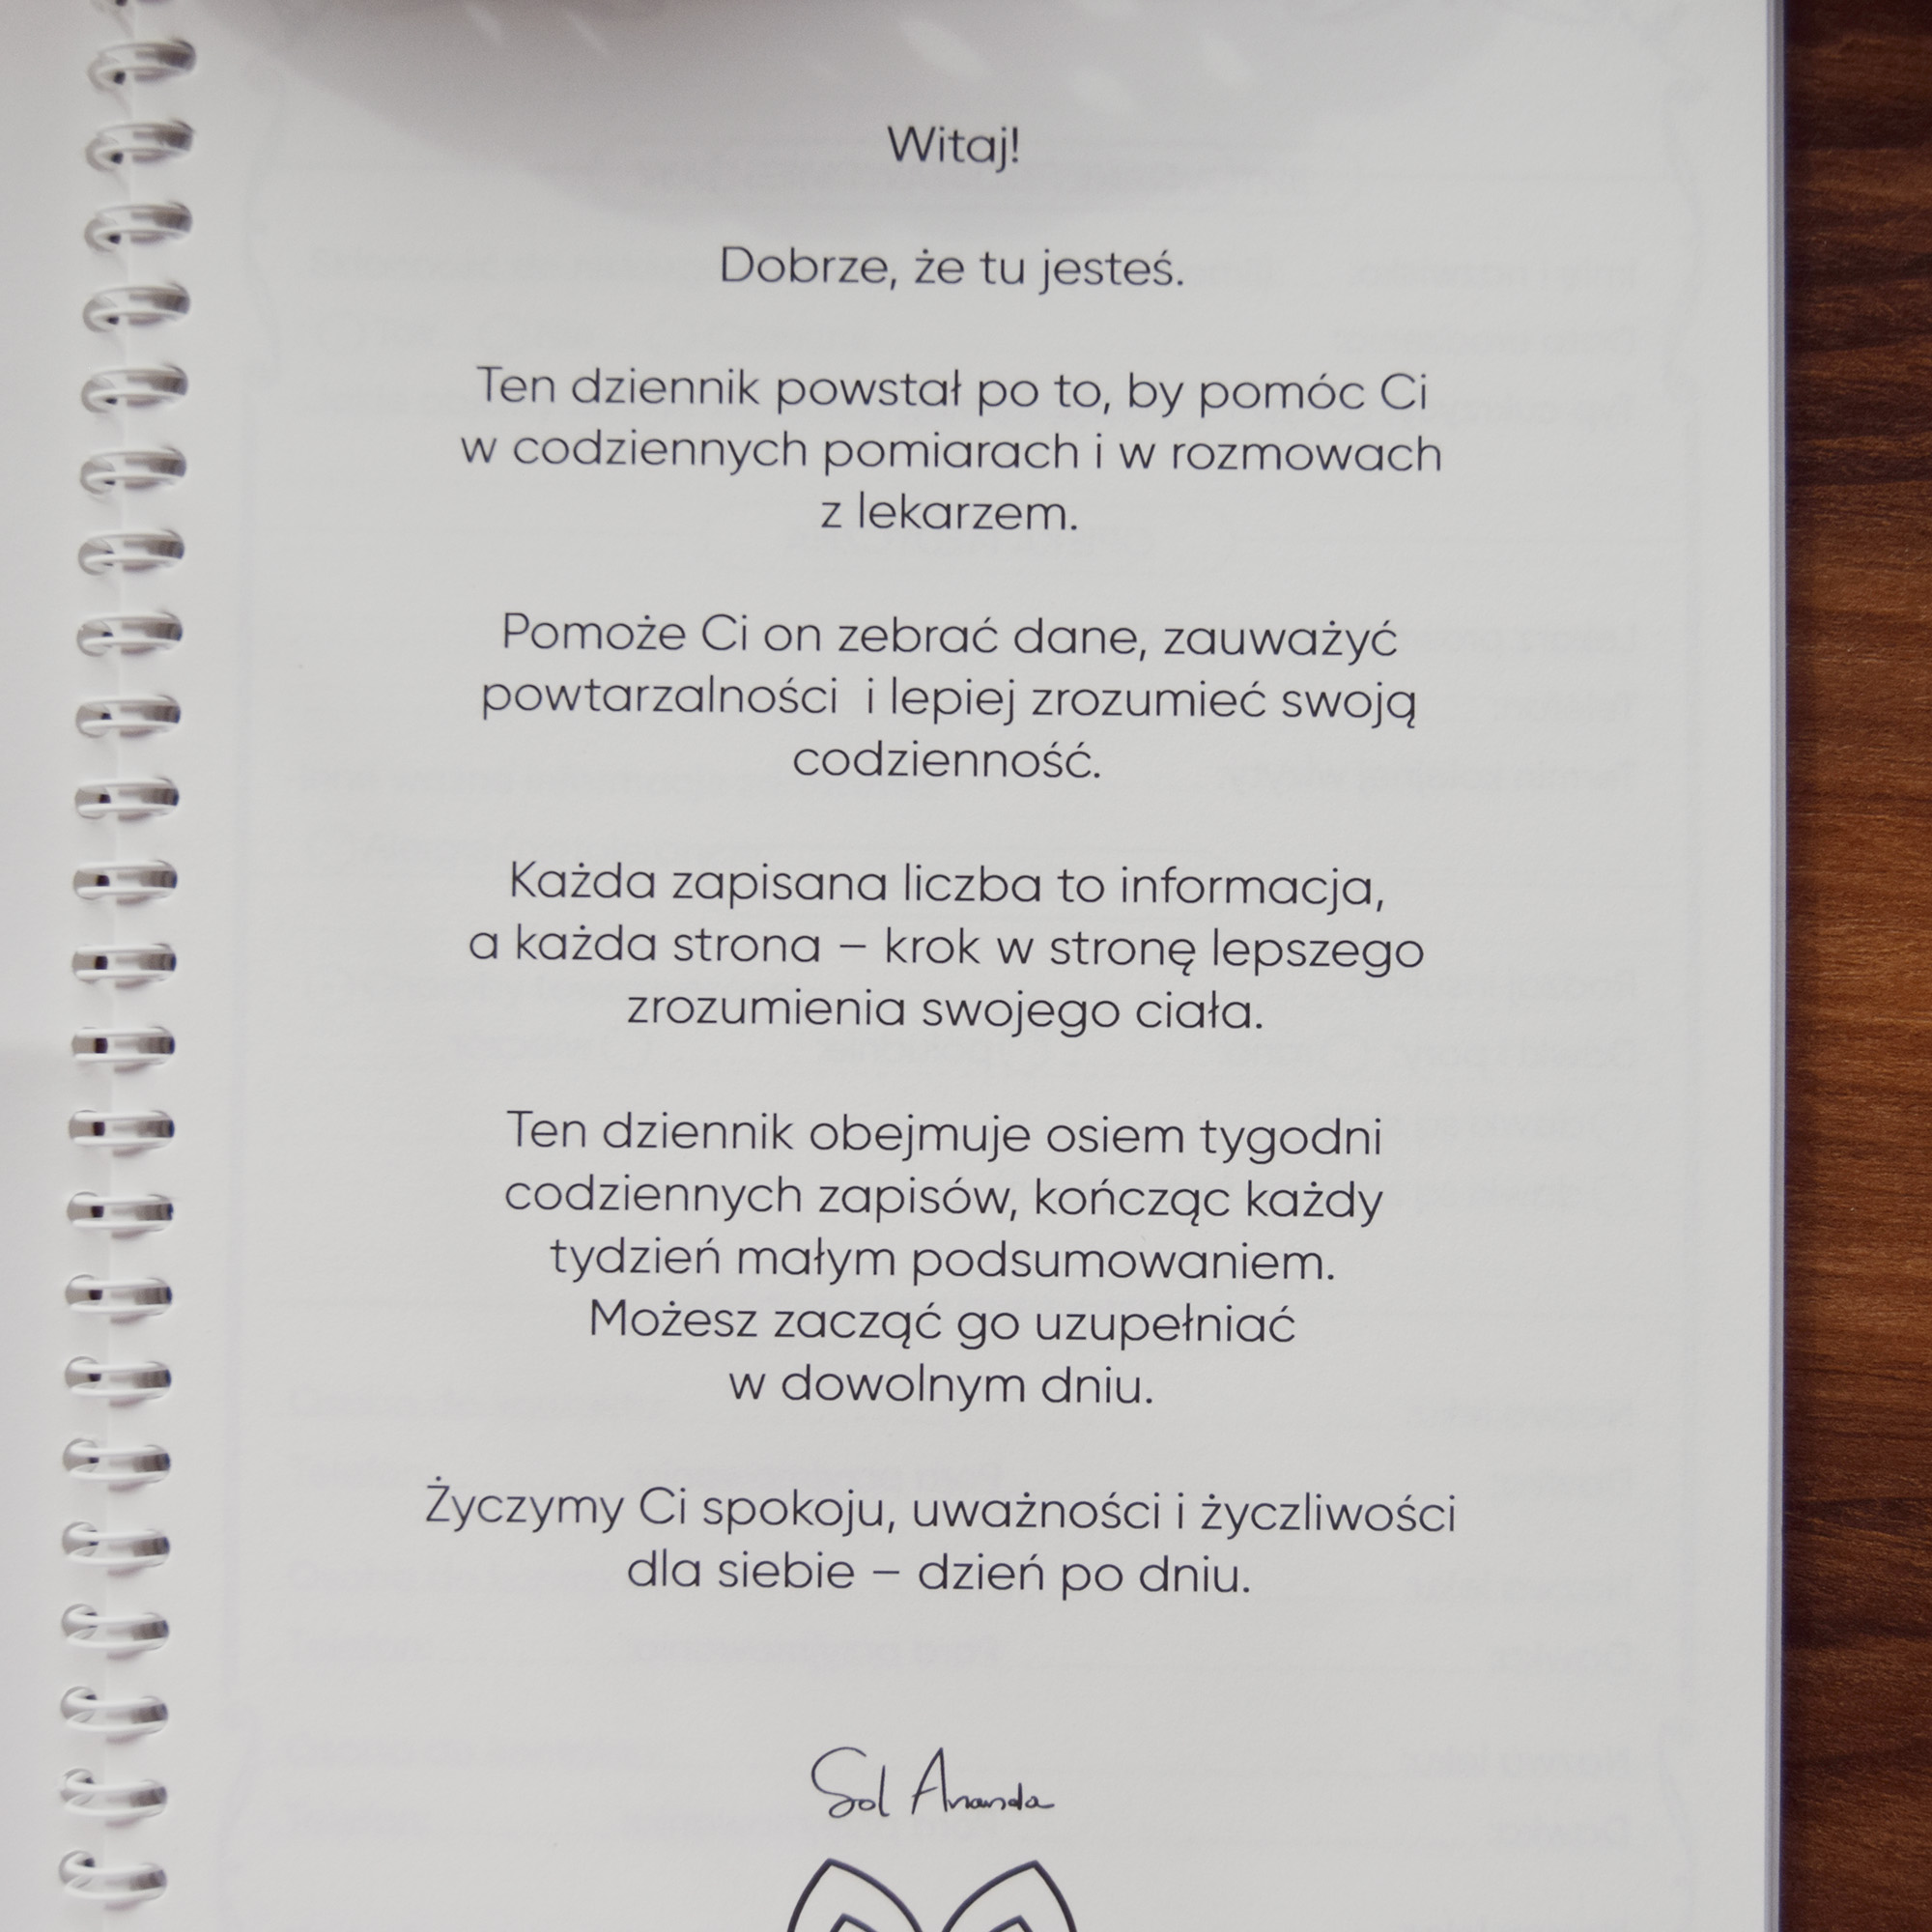 Witaj!
Dobrze, że tu jesteś.
Ten dziennik powstał po to, by pomóc Ci
w codziennych pomiarach i w rozmowach
z lekarzem.
Pomoże Ci on zebrać dane, zauważyć
powtarzalności i lepiej zrozumieć swoją
codzienność.
Każda zapisana liczba to informacja,
a każda strona – krok w stronę lepszego
zrozumienia swojego ciała.
Ten dziennik obejmuje osiem tygodni
codziennych zapisów, kończąc każdy
tydzień małym podsumowaniem.
Możesz zacząć go uzupełniać
w dowolnym dniu.
Życzymy Ci spokoju, uważności i życzliwości
dla siebie – dzień po dniu.
Sol Ananda